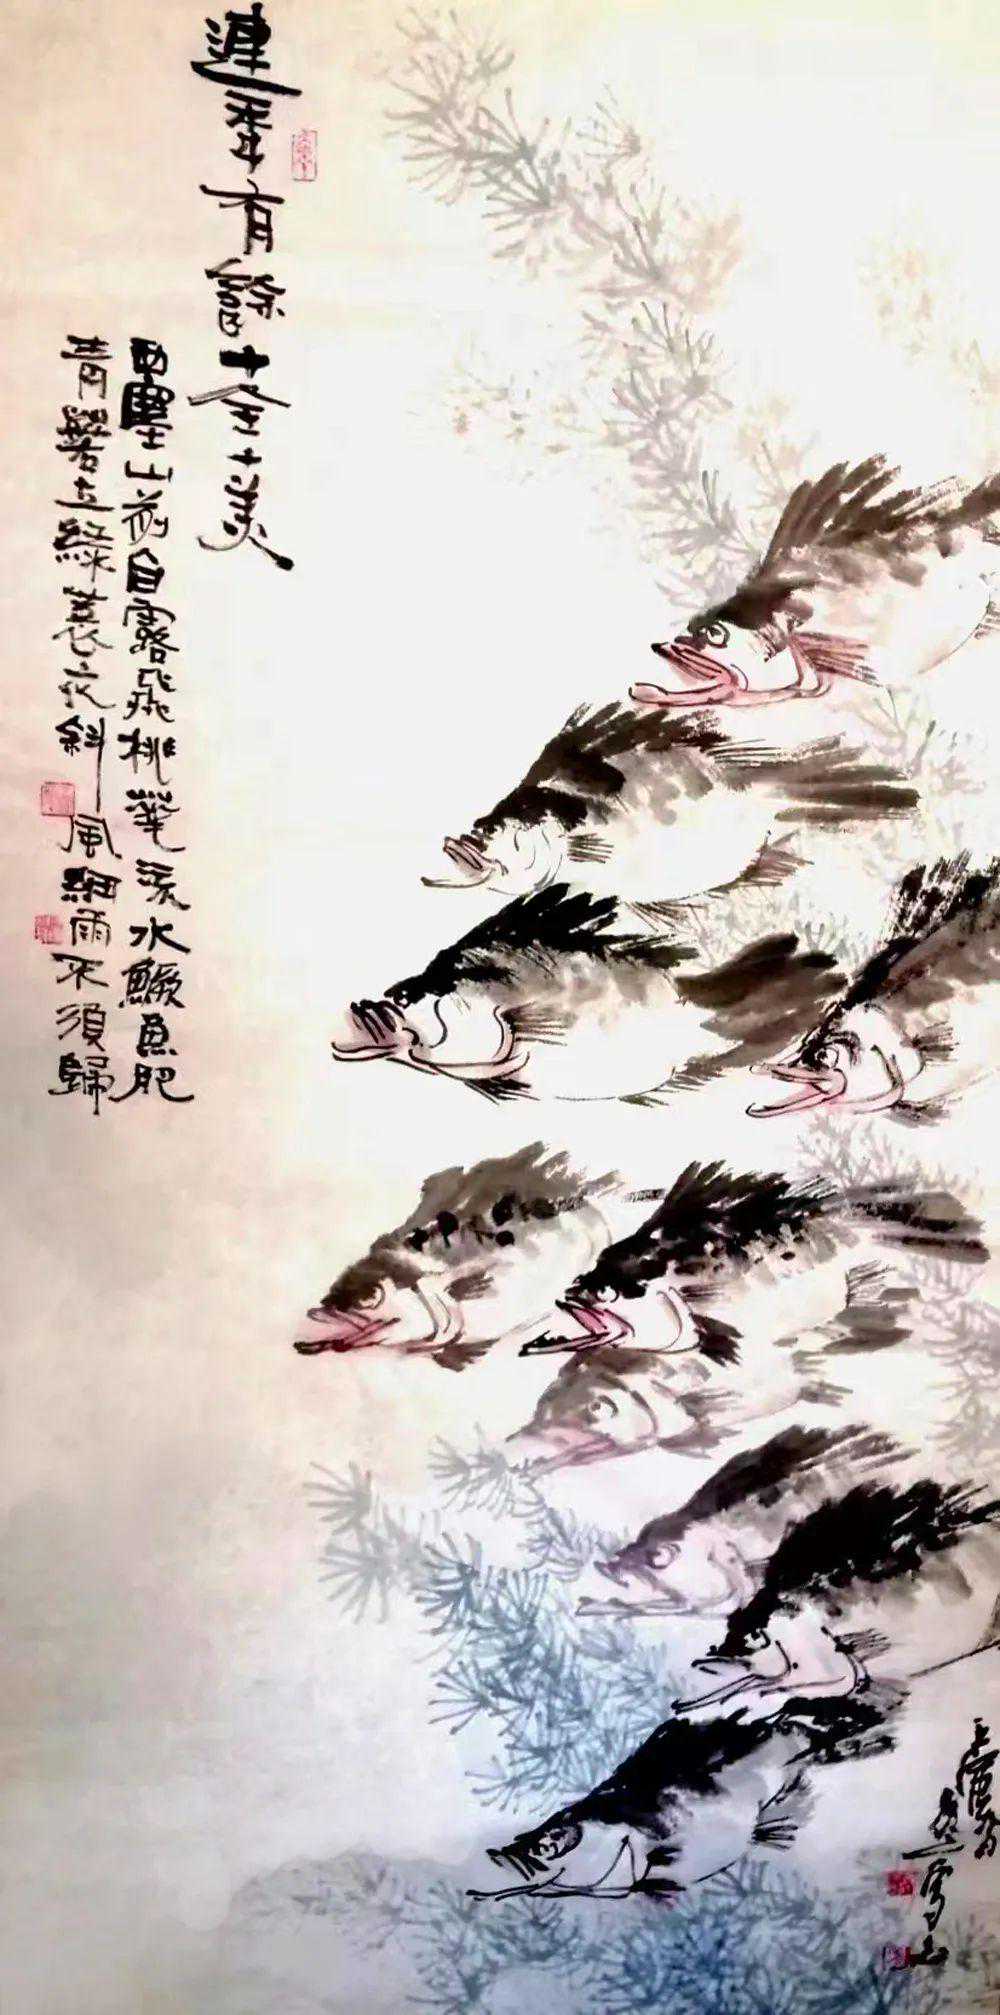 連年有餘十全十美
西塞山前白露飛桃華流水鱖魚肥
青箬立綠蓑衣斜風細雨不須歸